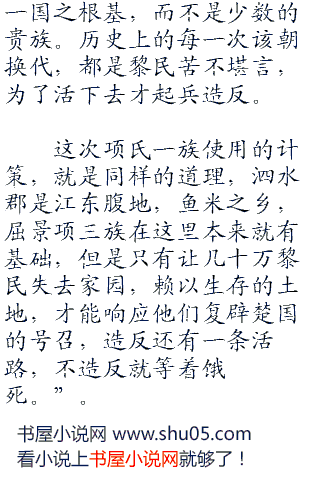 一国之根基，而不是少数的
贵族。历史上的每一次该朝
换代，都是黎民苦不堪言，
为了活下去才起兵造反。
这次项氏一族使用的计
策，就是同样的道理，泗水
郡是江东腹地，鱼米之乡，
屈景项三族在这里本来就有
基础，但是只有让几十万黎
民失去家园，赖以生存的土
地，才能响应他们复辟楚国
的号召，造反还有一条活
路，不造反就等着饿
死。”。
书屋小说网 www.shu05.com
看小说上书屋小说网就够了！